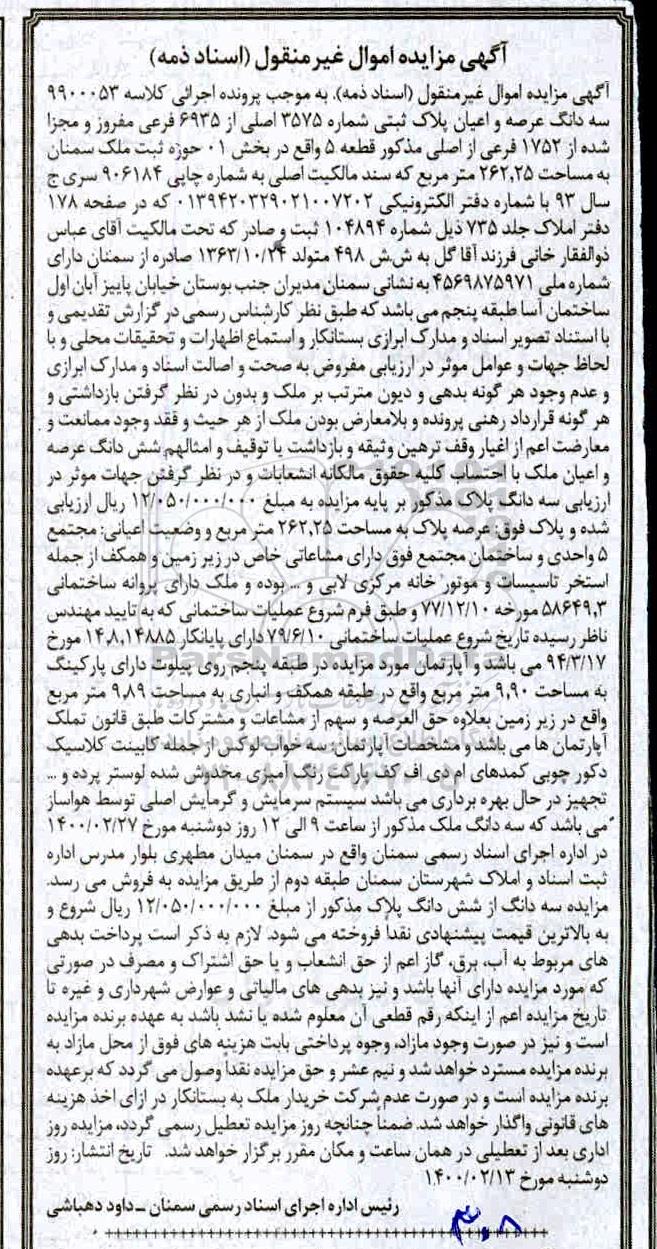 آگهی مزایده اموال غیرمنقول (اسناد ذمه)
آگهی مزایده اموال غیرمنقول (اسناد ذمه)، به موجب پرونده اجرائی کلاسه ۹۹۰۰۰۵۳
سه دانگ عرصه و اعیان پلاک ثبتی شماره ۳۵۷۵ اصلی از ۶۹۳۵ فرعی مفروز و مجزا
شده از ۱۷۵۲ فرعی از اصلی مذکور قطعه ۵ واقع در بخش ۰۱ حوزه ثبت ملک سمنان
به مساحت ۲۶۲,۲۵ متر مربع که سند مالکیت اصلی به شماره چاپی ۹۰۶۱۸۴ سری ج
سال ۹۳ با شماره دفتر الکترونیکی ۰۱۳۹۴۲۰۳۲۹۰۲۱۰۰۷۲۰۲ که در صفحه ۱۷۸
دفتر املاک جلد ۷۳۵ ذیل شماره ۱۰۴۸۹۴ ثبت و صادر که تحت مالکیت آقای عباس
ذوالفقار خانی فرزند آقا گل به ش.ش ۴۹۸ متولد ۱۳۶۳/۱۰/۲۴ صادره از سمنان دارای
شماره ملی ۴۵۶۹۸۷۵۹۷۱ به نشانی سمنان مدیران جنب بوستان خیابان پاییز آبان اول
ساختمان آسا طبقه پنجم می باشد که طبق نظر کارشناس رسمی در گزارش تقدیمی و
با استناد تصویر اسناد و مدارک ابرازی بستانکار و استماع اظهارات و تحقیقات محلی و با
لحاظ جهات و عوامل موثر در ارزیابی مفروض به صحت و اصالت اسناد و مدارک ابرازی
و عدم وجود هر گونه بدهی و دیون مترتب بر ملک و بدون در نظر گرفتن بازداشتی و
هر گونه قرارداد رهنی پرونده و بلامعارض بودن ملک از هر حیث و فقد وجود ممانعت و
معارضت اعم از اغیار وقف ترهین وثیقه و بازداشت یا توقیف و امثالهم شش دانگ عرصه
و اعیان ملک با احتساب کلیه حقوق مالکانه انشعابات و در نظر گرفتن جهات موثر در
ارزیابی سه دانگ پلاک مذکور بر پایه مزایده به مبلغ ۱۲/۰۵۰/۰۰۰/۰۰۰ ریال ارزیابی
شده و پلاک فوق: عرصه پلاک به مساحت ۲۶۲,۲۵ متر مربع و وضعیت اعیانی: مجتمع
۵ واحدی و ساختمان مجتمع فوق دارای مشاعاتی خاص در زیر زمین و همکف از جمله
استخر تاسیسات و موتور خانه مرکزی لابی و ... بوده و ملک دارای پروانه ساختمانی
۵۸۶۴۹,۳ مورخه ۷۷/۱۲/۱۰ و طبق فرم شروع عملیات ساختمانی که به تایید مهندس
ناظر رسیده تاریخ شروع عملیات ساختمانی ۷۹/۶/۱۰ دارای پایانکار ۱۴۸,۱۴۸۸۵ مورخ
۹۴/۳/۱۷ می باشد و آپارتمان مورد مزایده در طبقه پنجم روی پیلوت دارای پارکینگ
به مساحت ۹,۹۰ متر مربع واقع در طبقه همکف و انباری به مساحت ۹,۸۹ متر مربع
واقع در زیر زمین بعلاوه حق العرصه و سهم از مشاعات و مشترکات طبق قانون تملک
آپارتمان ها می باشد و مشخصات آپارتمان: سه خواب لوکس از جمله کابینت کلاسیک
دکور چوبی کمدهای ام دی اف کف پارکت رنگ آمیزی مخدوش شده لوستر پرده و ...
تجهیز در حال بهره برداری می باشد سیستم سرمایش و گرمایش اصلی توسط هواساز
می باشد که سه دانگ ملک مذکور از ساعت ۹ الی ۱۲ روز دوشنبه مورخ ۱۴۰۰/۰۲/۲۷
در اداره اجرای اسناد رسمی سمنان واقع در سمنان میدان مطهری بلوار مدرس اداره
ثبت اسناد و املاک شهرستان سمنان طبقه دوم از طریق مزایده به فروش می رسد.
مزایده سه دانگ از شش دانگ پلاک مذکور از مبلغ ۱۲/۰۵۰/۰۰۰/۰۰۰ ریال شروع و
به بالاترین قیمت پیشنهادی نقداً فروخته می شود. لازم به ذکر است پرداخت بدهی
های مربوط به آب، برق، گاز اعم از حق انشعاب و یا حق اشتراک و مصرف در صورتی
که مورد مزایده دارای آنها باشد و نیز بدهی های مالیاتی و عوارض شهرداری و غیره تا
تاریخ مزایده اعم از اینکه رقم قطعی آن معلوم شده یا نشد باشد به عهده برنده مزایده
است و نیز در صورت وجود مازاد، وجوه پرداختی بابت هزینه های فوق از محل مازاد به
برنده مزایده مسترد خواهد شد و نیم عشر و حق مزایده نقداً وصول می گردد که برعهده
برنده مزایده است و در صورت عدم شرکت خریدار ملک به بستانکار در ازای اخذ هزینه
های قانونی واگذار خواهد شد. ضمناً چنانچه روز مزایده تعطیل رسمی گردد، مزایده روز
اداری بعد از تعطیلی در همان ساعت و مکان مقرر برگزار خواهد شد. تاریخ انتشار: روز
دوشنبه مورخ ۱۴۰۰/۰۲/۱۳
رئیس اداره اجرای اسناد رسمی سمنان ـ داود دهباشی